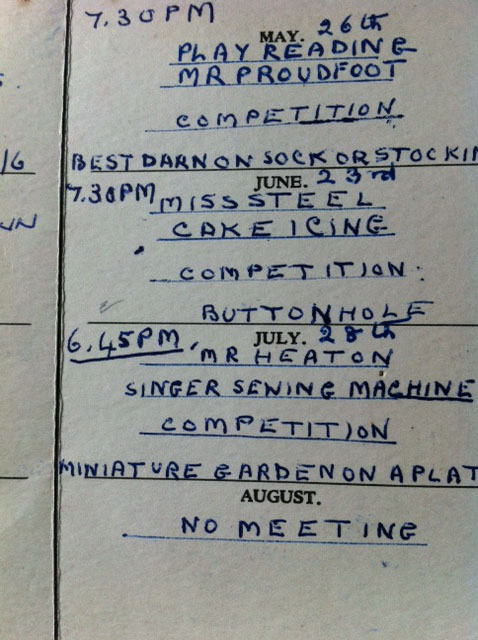 7.30PM
MAY. 26th
PLAY READING
MR PROUDFOOT
COMPETITION
BEST DARN ON SOCK OR STOCKIN
JUNE. 23rd
7.30PM MISS STEEL
CAKE ICING
COMPETITION.
BUTTONHOLE
JULY. 28th
6.45PM. MR HEATON
SINGER SEWING MACHINE
COMPETITION
MINIATURE GARDEN ON A PLAT
AUGUST.
NO MEETING